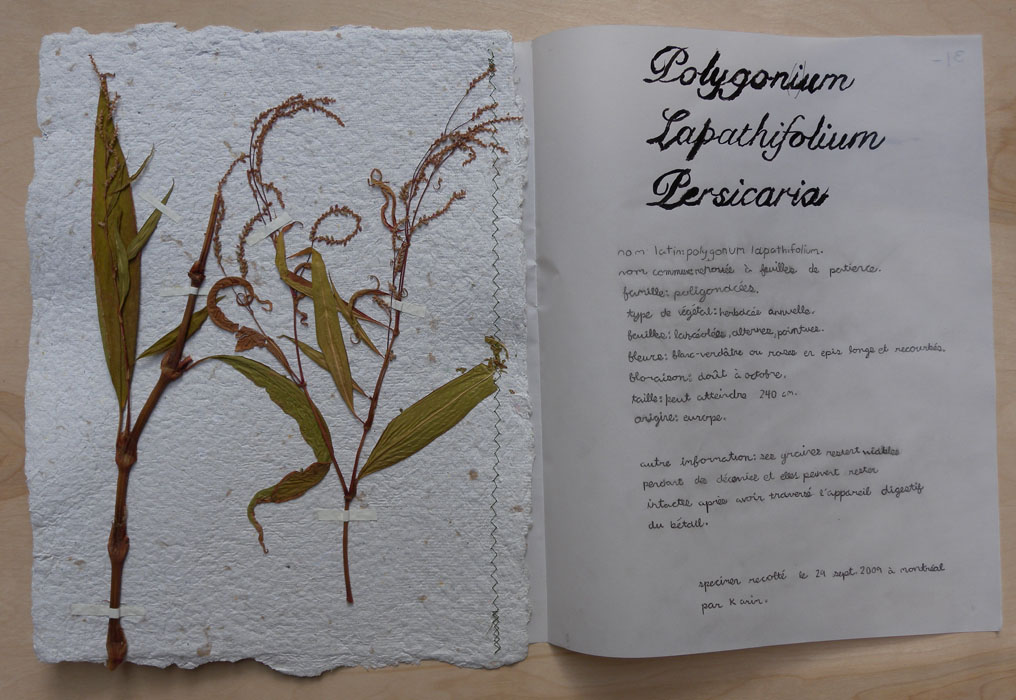 Polygonium
Lapathifolium
Persicaria
nom latin: polygonum lapathifolium.
nom commun: renouée à feuilles de patience.
famille: poligonacées.
type de végétal: herbacée annuelle.
feuilles: lancéolées, alternes, pointues.
fleurs: blanc-verdâtre ou roses en épis longs et recourbés.
floraison: août à octobre.
taille: peut atteindre 240 cm.
origine: europe.
autre information: ses graines restent viables
pendant des décennies et elles peuvent rester
intactes après avoir traversé l'appareil digestif
du bétail.
specimen recolté le 29 sept. 2009 à montréal
par Karin.